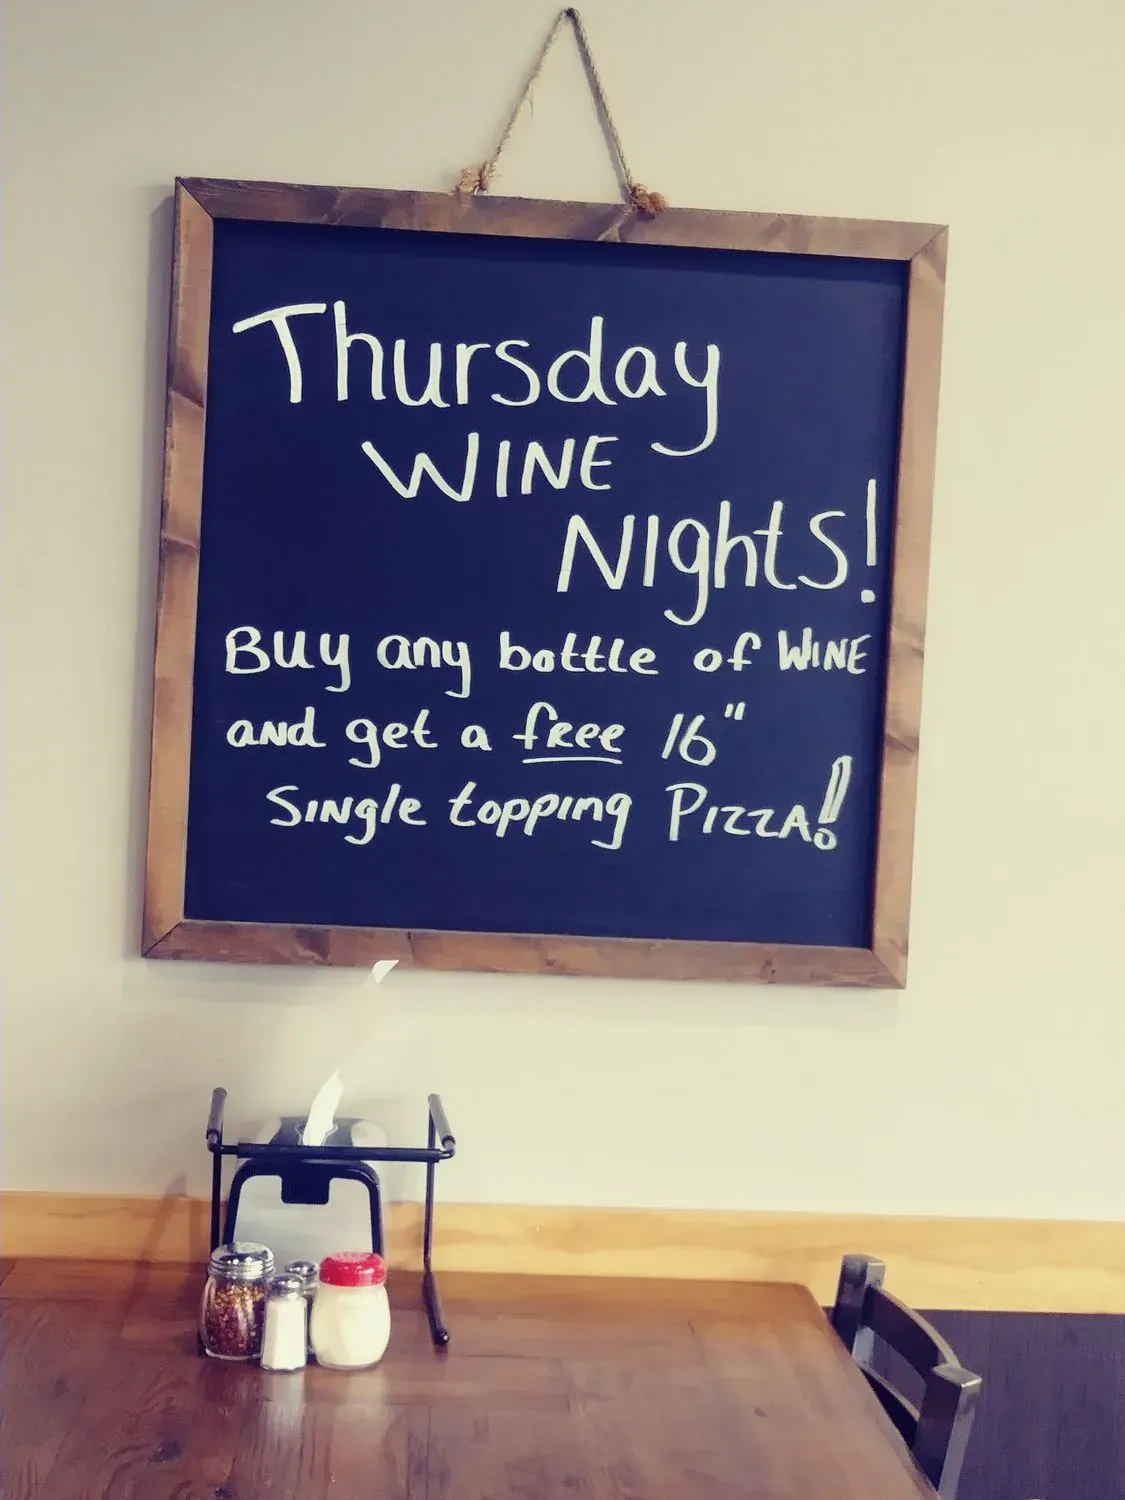 Thursday
WINE
NIghts!
Buy any bottle of WINE
and get a free 16"
SINgle topping PIZZA!